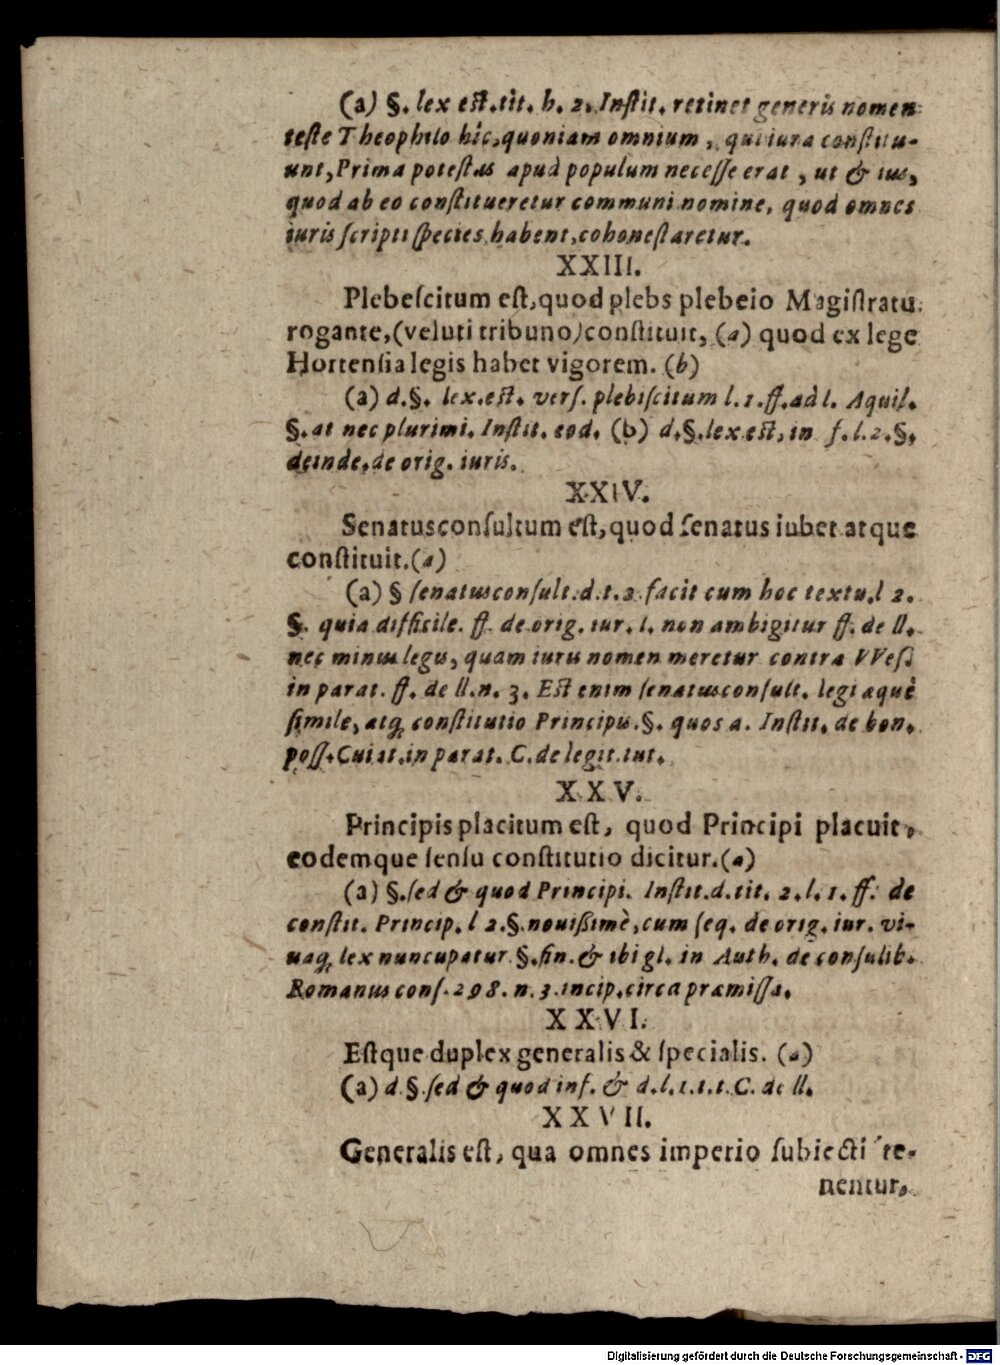 (a) §. lex est. tit. h. 2. Instit. retinet generis nomen
teste Theophilo hîc, quoniam omnium, qui iura constitu-
unt, Prima potestas apud populum necesse erat, ut & ius,
quod ab eo constitueretur communi nomine, quod omnes
iuris scripti species habent, cohonestaretur.
XXIII.
Plebescitum est, quod plebs plebeio Magistratu
rogante, (veluti tribuno) constituit, (a) quod ex lege
Hortensia legis habet vigorem. (b)
(a) d. §. lex. est. vers. plebiscitum l. 1. ff. ad l. Aquil.
§. at nec plurimi. Instit. eod. (b) d. §. lex est, in f. l. 2. §.
deinde, de orig. iuris.
XXIV.
Senatusconsultum est, quod senatus iubet atque
constituit. (a)
(a) § senatusconsult. d. t. 2 facit cum hoc textu. l 2.
§. quia difficile. ff. de orig. iur. l. non ambigitur ff. de ll.
nec minus legis, quam iuris nomen meretur contra VVes.
in parat. ff. de ll. n. 3. Est enim senatusconsult. legi aquè
simile, atq; constitutio Principis. §. quos a. Instit. de bon.
poss. Cuiat. in parat. C. de legit. tut.
XXV.
Principis placitum est, quod Principi placuit,
eodemque sensu constitutio dicitur. (a)
(a) §. sed & quod Principi. Instit. d. tit. 2. l. 1. ff. de
constit. Princip. l 2. §. nouißimè, cum seq. de orig. iur. vi-
uaq; lex nuncupatur §. fin. & ibi gl. in Auth. de consulib.
Romanus cons. 298. n. 3. incip. circa præmissa.
XXVI.
Estque duplex generalis & specialis. (a)
(a) d. §. sed & quod inf. & d. l. 1. t. t. C. de ll.
XXVII.
Generalis est, qua omnes imperio subiecti te-
nentur,
Digitalisierung gefördert durch die Deutsche Forschungsgemeinschaft - DFG